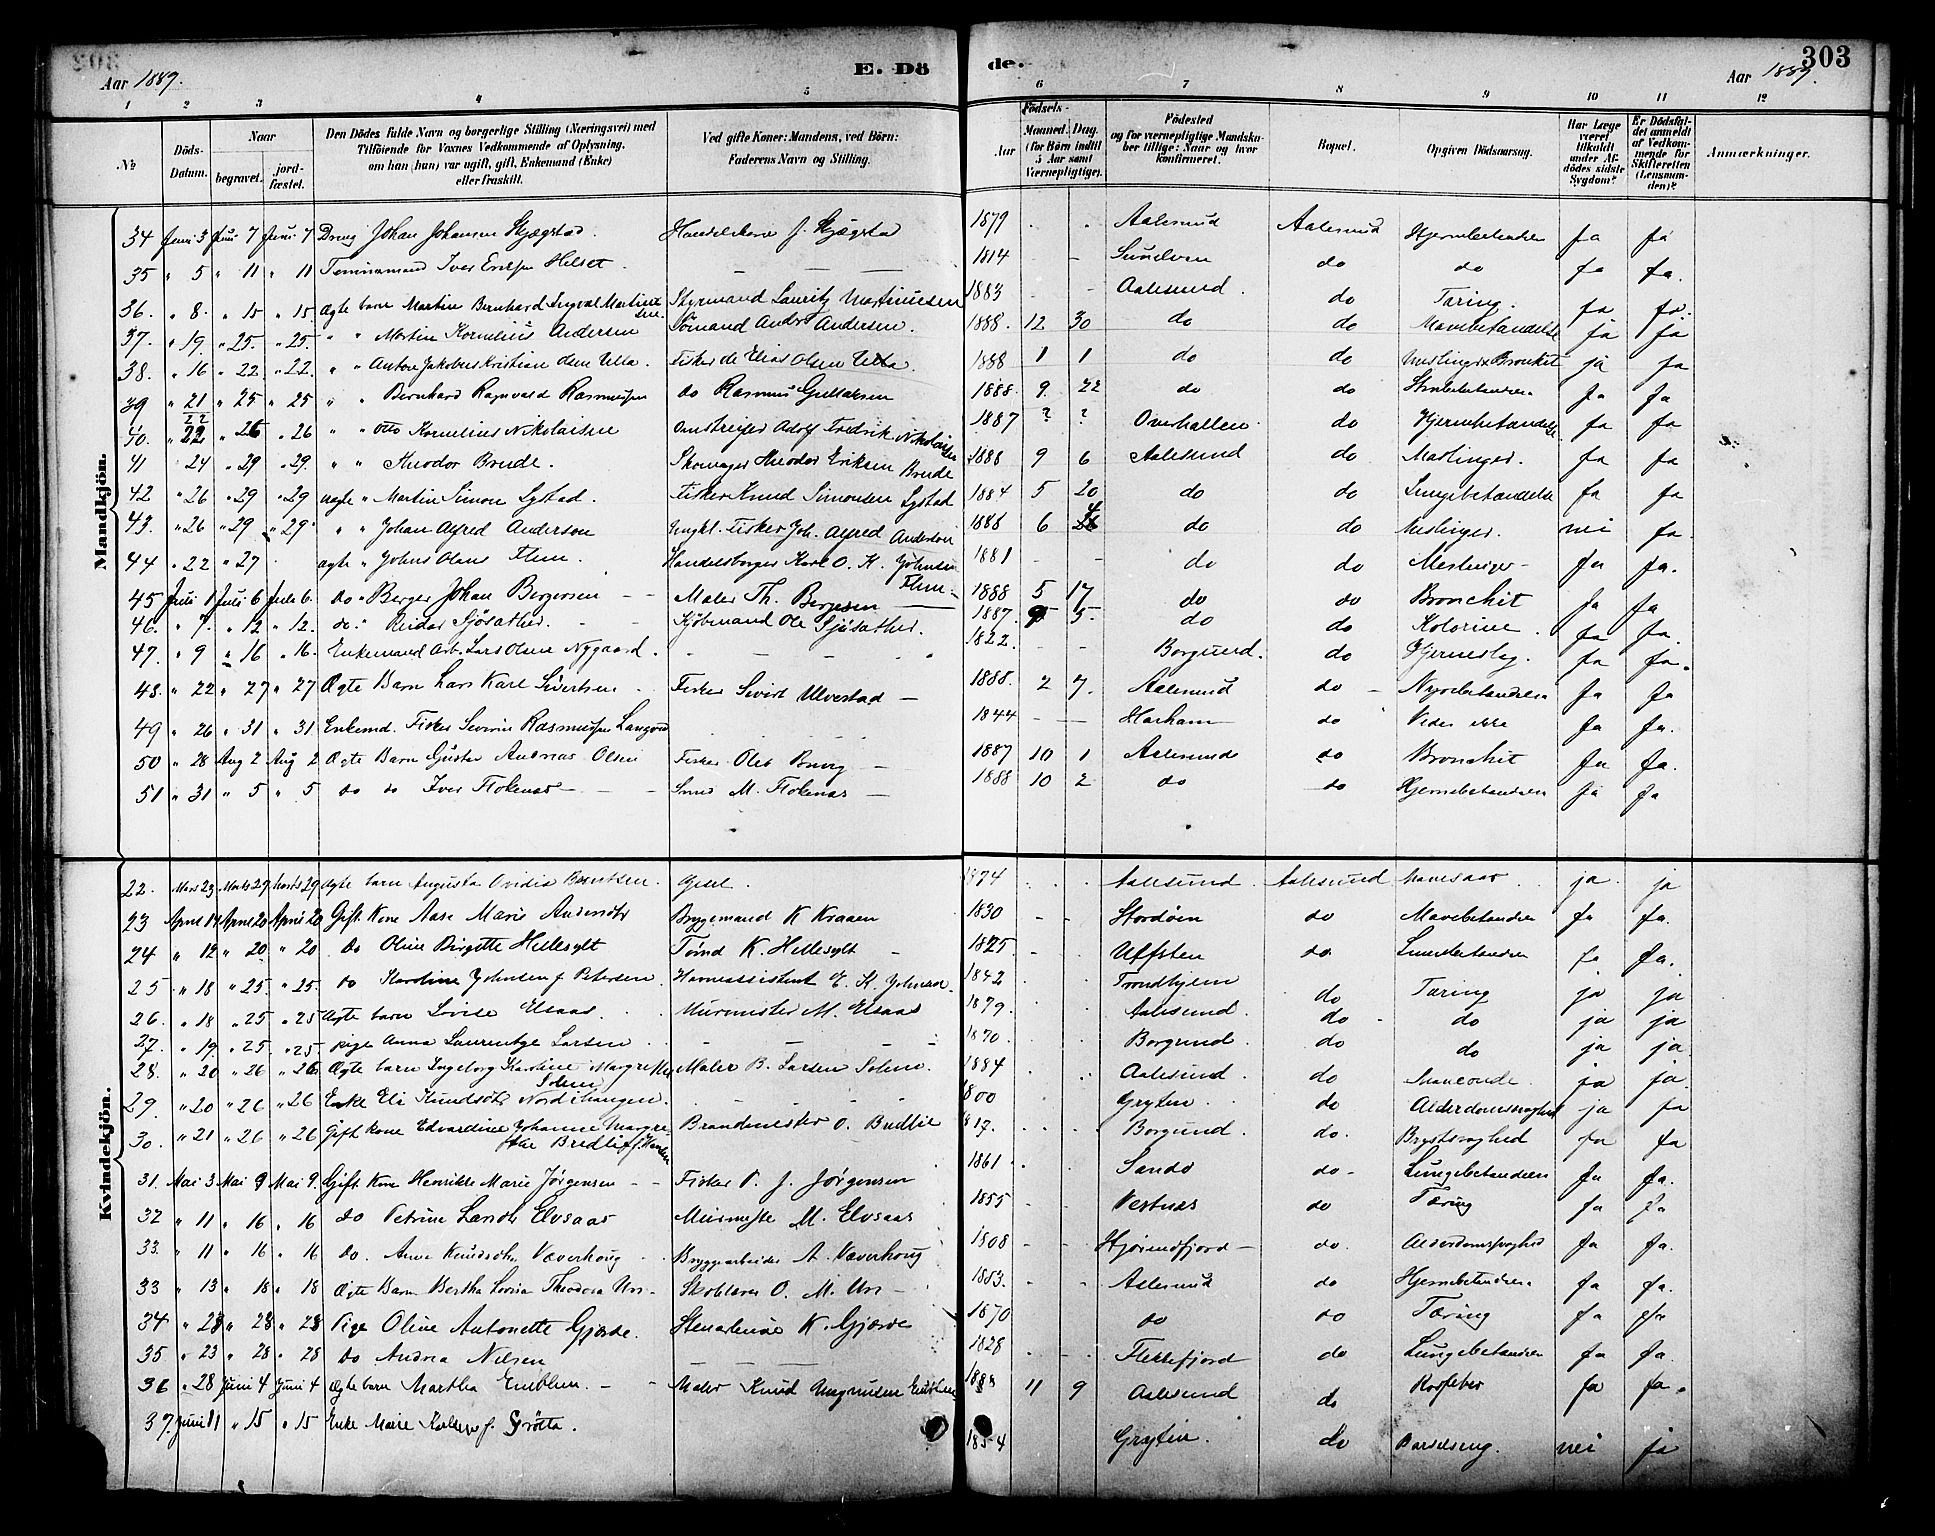 303
Aar 1889.
E. Döde.
Aar 1889.
1 2 3 4 5 6 7 8 9 10 11 12
№
Döds-Datum.
Naar
begravet.
jordfæstet.
Den Dödes fulde Navn og borgerlige Stilling (Næringsvei) med Tilföiende for Voxnes Vedkommende af Oplysning, om han (hun) var ugift, gift, Enkemand (Enke) eller fraskilt.
Ved gifte Koner: Mandens, ved Börn: Faderens Navn og Stilling.
Födsels-
Aar
Maaned. Dag.
(for Börn indtil 5 Aar samt Værnepligtige).
Födested og for værnepligtige Mandskaber tillige: Naar og hvor konfirmeret.
Bopæl.
Opgiven Dödsaarsag.
Har Læge været tilkaldt under Afdödes sidste Sygdom?
Er Dödsfaldet anmeldt af Vedkommende for Skifteretten (Lensmanden)?
Anmærkninger.
Mandkjön.
34 Juni 3 Juni 7 Juni 7 Dreng Johan Johansen Skjegstad. Handelskarl J. Skjegstad 1879 Aalesund Aalesund Hjernebetændelse ja ja
35 " 5 " 11 " 11 Iver Eriksen Helset. 1814 do do ja ja.
36. " 8. " 15 " 15 Ægte barn Martin Bernhard Ingval Martinsen Styrmand Lauritz Martinusen 1883 Aalesund. do Tæring. ja ja.
37. " 19. " 25. " 25. " " Martin Kornelius Andersen Sömand Andr. Andersen. 1888. 12 30 do do Mavebetændelse ja ja
38. " 16 " 22. " 22. " " Anton Jakobus Kristian Olsen Ulla. Fisker Elias Olsen Ulla. 1888 1 1 do do Meslinger Bronkit ja ja
39 " 21 " 25 " 25 " " Bernhard Ragnvald Rasmussen do Rasmus Gullaksen 1888. 9. 22 do do ja ja
40. " 22 " 26 " 26 " " Otto Kornelius Nikolaisen Adolf Fredrik Nikolaisen 1887 ? ? Overhallen. do Hjernebetændelse ja ja
41 24 " 29 " 29. " " Theodor Brude. Skomager Theodor Eriksen Brude 1888 9 6 Aalesund do Meslinger. ja ja
42 " 26 " 29 " 29 uægte " Martin Simon Systad. Fisker Knud Simonsen Systad 1884 5 20 do do Lungebetændelse ja ja
43. " 26 " 29 " 29 " " Johan Alfred Anderson Ungkl. Fisker Joh. Alfred Anderson 1888 6 4 do do Meslinger. nei ja.
44 " 22 " 27 ægte " Johns Olaus Flem. Handelsborger Karl O. K. Johnsen Flem 1881 do do Meslinger ja ja.
45 Juni 1 Juli 6 Juli 6. do " Berger Johan Bergersen Maler Th. Bergesen 1888 5 17 do do Bronchit ja ja
46. " 7. " 12 " 12. do " Reidar Sjösæther. Kjöbmand Ole Sjösæther. 1887. 5. do do Kolerine. ja ja.
47. " 9 " 16 " 16. Enkemand Arb. Lars Olsen Nygaard. 1822. Borgund. do Hjerneslag. ja ja.
48. " 22 " 27 " 27 Ægte Barn Lars Karl Sivertsen Fisker Sivert Ulvestad 1888. 2 7. Aalesund do Nyrebetændelse ja ja
49 " 26 " 31 " 31 Enkemd. Fisker Severin Rasmussen Langva 1844 Harham do Vides ikke ja ja.
50 " 28 Aug 2 Aug 2 Ægte Barn Gustav Andreas Olsen Fisker Ole 1887 10 1 Aalesund do Bronchit ja ja.
51 " 31 " 5 " 5 do do Iver Flokenæs Smed M. Flokenæs 1888 10 2 do do Hjernebetændelse ja ja
Kvindekjön.
22. Marts 23 Marts 29 Marts 29 Ægte barn Augusta Ovidia Berntsen. 1874 Aalesund. Aalesund ja ja
23 April 14 April 20 April 20 Gift Kone Aase Marie Andersdtr Bryggemand K Kraaen 1830 Stordöen do Mavebetændelse ja ja.
24 " 12 " 20 " 20 Do Oline Birgitte Hellesylt Tömd K. Hellesylt 1825 do ja ja.
25 " 18 " 25. " 25. do Karoline Johnsen f. Petersen Havneassistent E. K. Johnsen 1842 Trondhjem do Tæring ja ja
26. " 18 " 25 " 25 Ægte barn Lovise Elsaas. Murmester M. Elsaas 1879. Aalesund. do do ja ja
27. " 19. " 25. " 25 Pige Anna Laurentze Larsen 1870. Borgund. do do ja ja.
28. " 20 " 26 " 26 Ægte barn Ingeborg Karoline Margrethe Solem Maler B. Larsen Solem. 1884 Aalesund. do ja ja.
29. " 20 " 26 " 26 Enke Eli Knudsdtr Nordihaugen. 1800 Gryten. do Alderdomssvaghed ja ja
30. " 21 " 26 " 26 Gift Kone Edvardine Johanne Margrethe Bredlie f. Hansen Brandmester O. Bredlie 1817. Borgund. do. Brystsvaghed ja ja
31. Mai 3 Mai 9 Mai 9. Gift Kone Henrikke Marie Jörgensen Fisker P. J. Jörgensen 1861. Sandö do Lungebetændelse ja ja.
32 " 11 " 16 " 16 do Petrine Larsdtr Elvsaas Murmester M. Elvsaas 1855 Vestnæs do Tæring ja ja
33. " 11 " 16 " 16 do. Anne Knudsdtr Væverhoug Bryggearbeider A. Væverhoug 1808 Hjörundfjord do. Alderdomssvaghed ja ja.
33 " 13 " 18 " 18 Ægte Barn Bertha Lovisa Theodora Urs Skoblærer O. M. Urs 1883. Aalesund do Hjernebetændelse ja ja.
34 " 23 " 28 " 28 Pige Oline Antonette Gjærde. K. Gjærde 1870 do do Tæring ja ja
35 " 23 " 28 " 28 do Andrea Nilsen 1828 Flekkefjord do Lungebetændelse ja ja.
36 " 28 Juni 4 Juni 4 Ægte barn Martha Emblem. Maler Knud Magnusen Emblem 1888 11 9 Aalesund do Rosfeber ja ja.
37. Juni 11 " 15 " 15 Enke Marie f. Grötta. 1854 Gryten. do Barselseng. nei ja